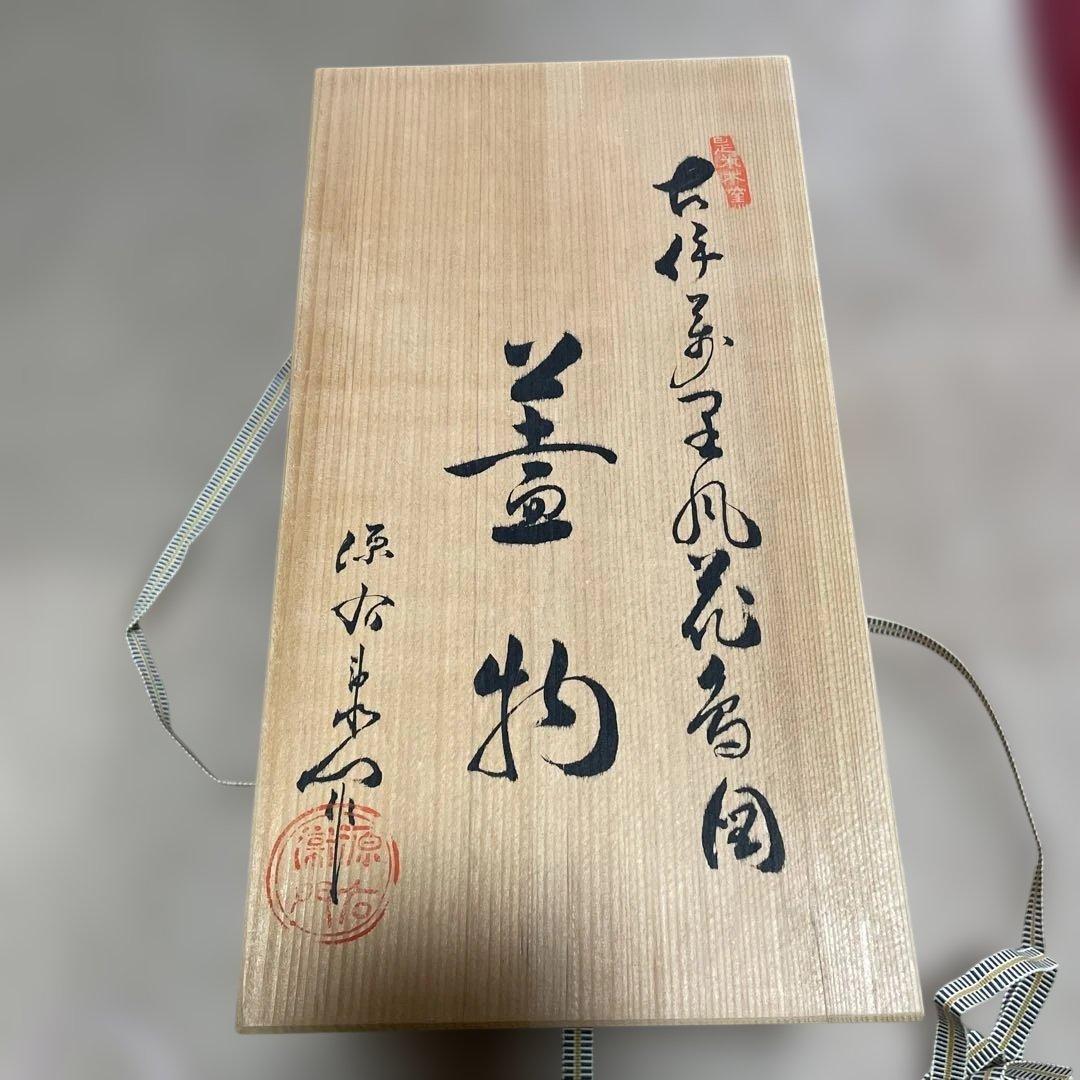 古伊萬里風花鳥図
蓋物
源右衛門作
源右衛門